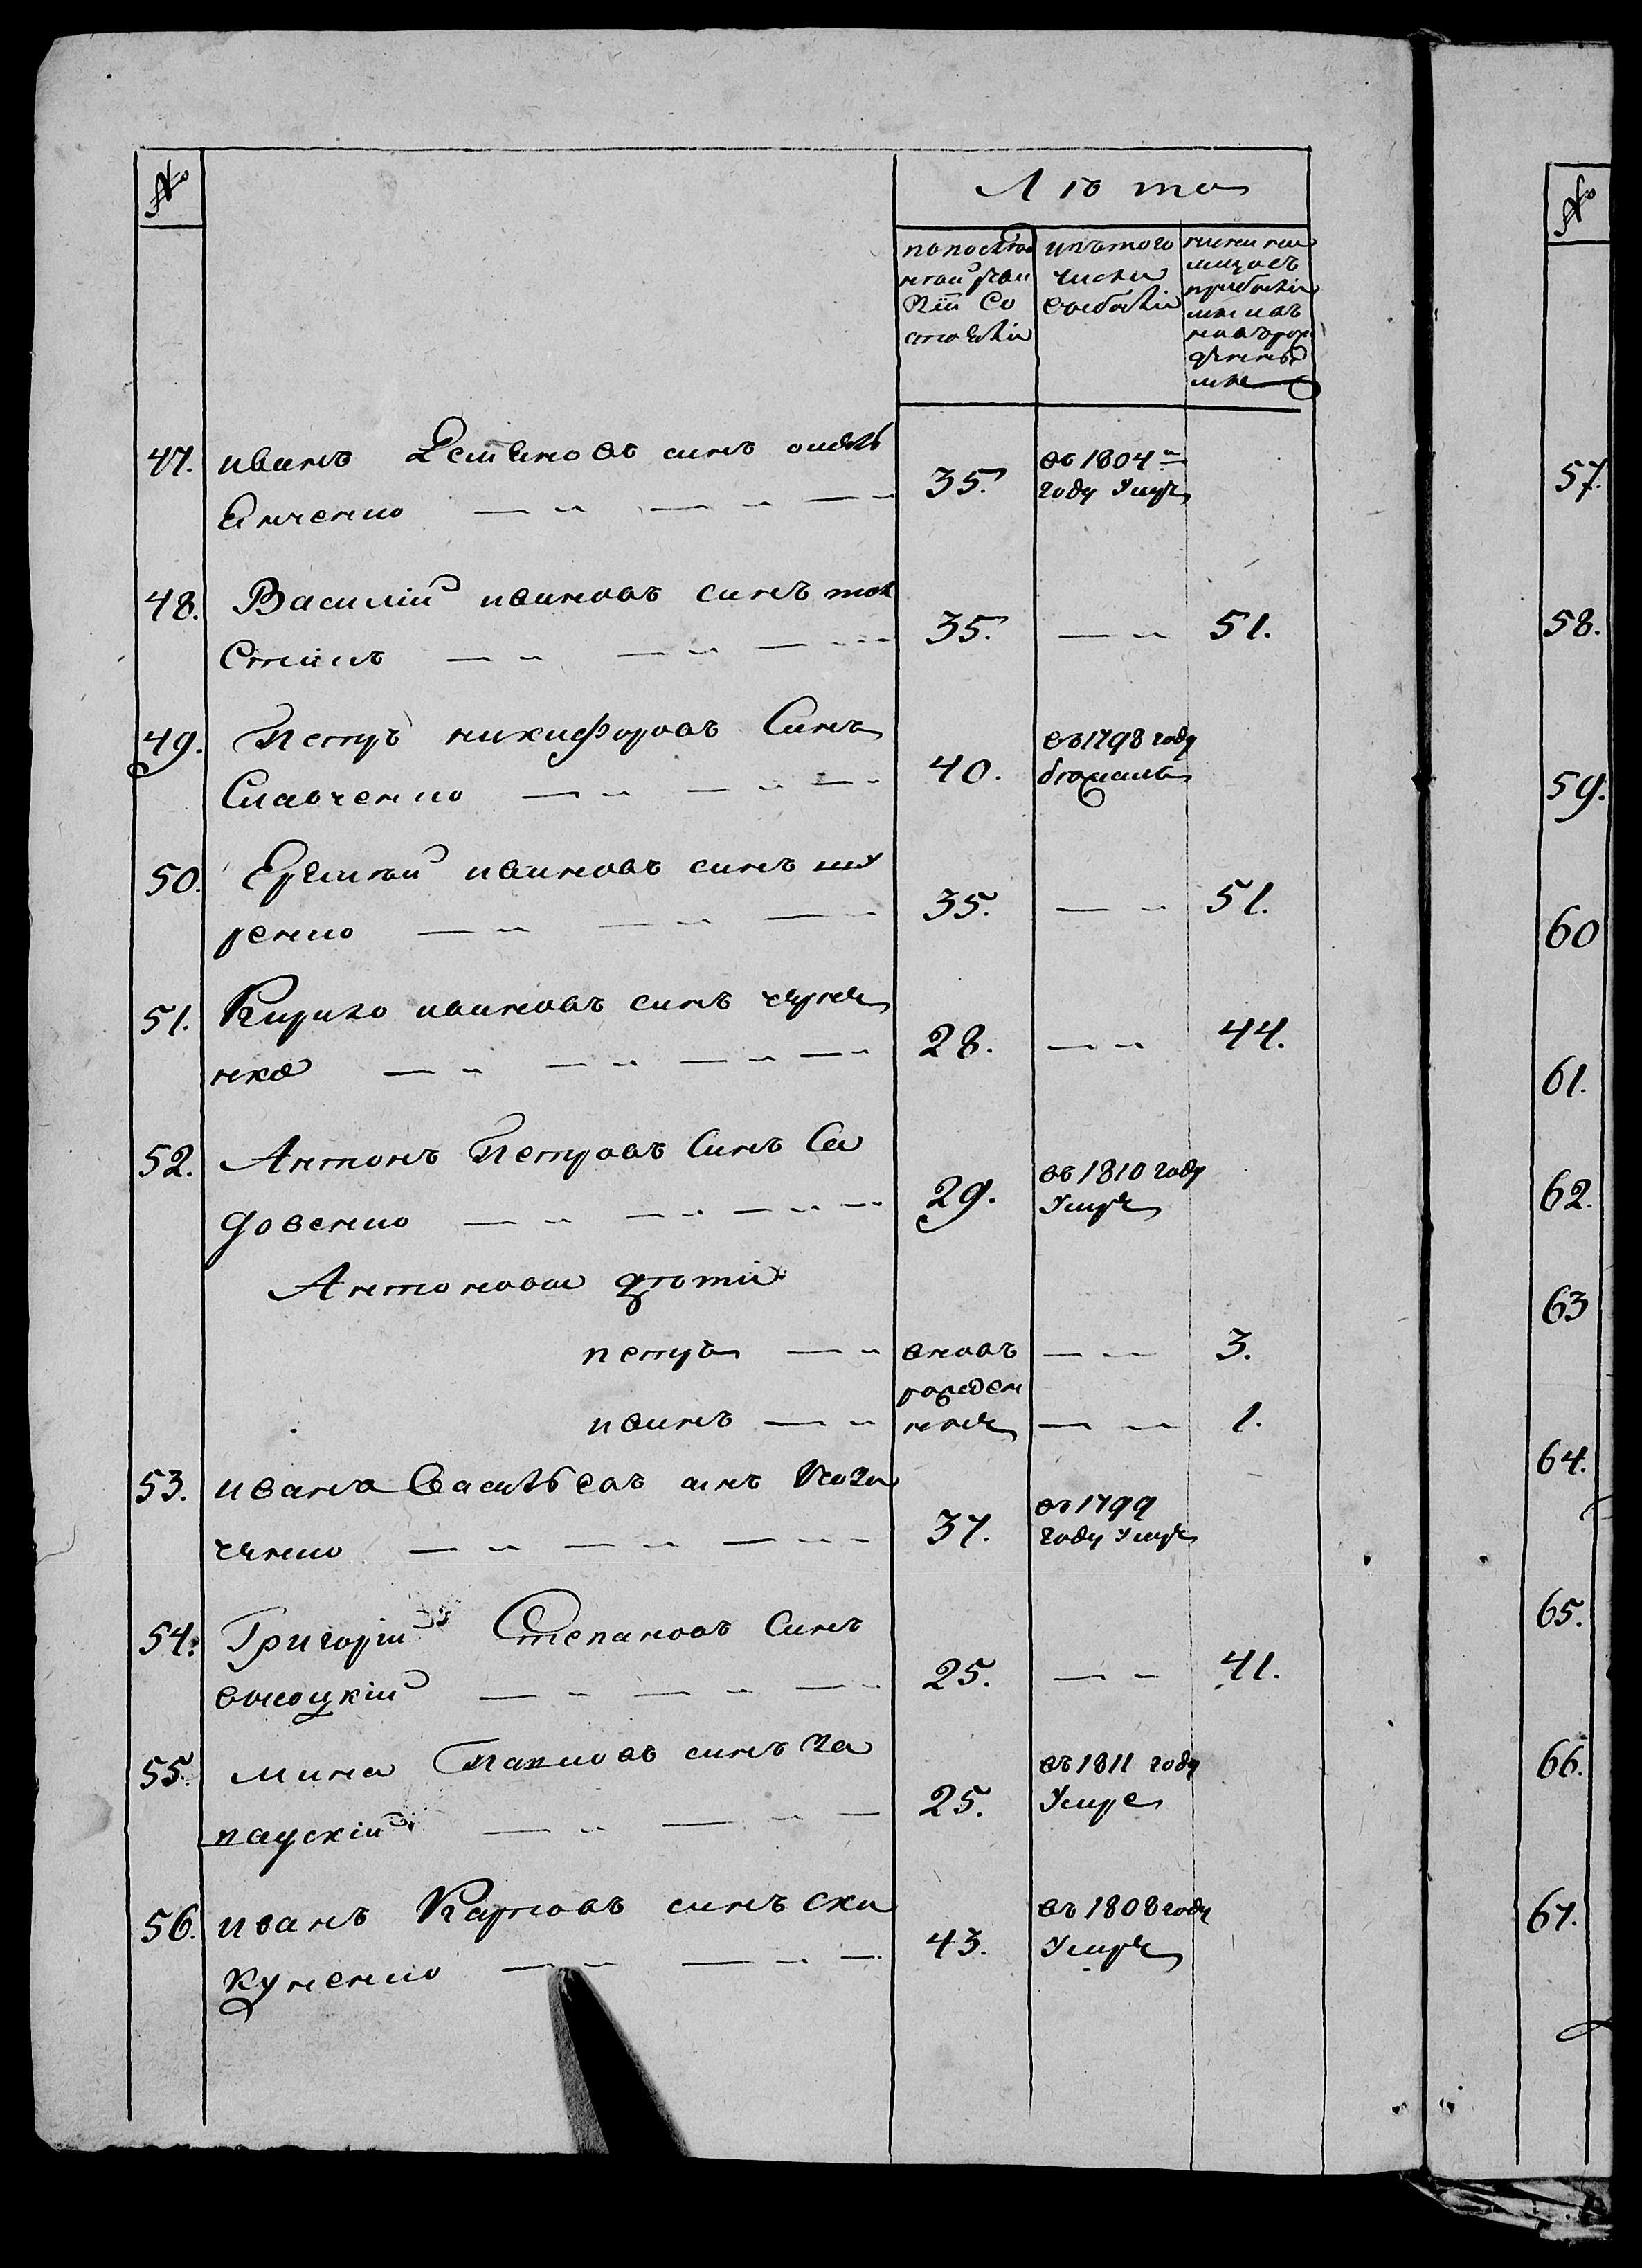 №
Лѣта
по послѣд
ней реви
зіи со
стояли
изъ того
числа
выбыли
ныне на
лицо съ
прибылы
ми и въ
новь рож
денны
ми
47. иванъ Устиновъ синъ омель
Янченко
35.
въ 1804м
году Умре
48. Василій ивановъ синъ тол
Стикъ
35.
51.
49. Петръ никифоровъ Синъ
Славченко
40.
въ 1798 году
бежалъ
50. Еремѣй ивановъ синъ ши
ренко
35.
51.
51. Кирило ивановъ синъ черне
нко
28.
44.
52. Антонъ Петровъ Синъ Са
довенко
29.
въ 1810 году
Умре
Антонови дѣти
петръ
вновъ
3.
рожден
иванъ
ние
1.
53. иванъ Васильевъ синъ Коза
ченко
37.
въ 1799
году умре
54. Григорій Степановъ Синъ
високцкій
25.
41.
55. мина Павловъ синъ Ча
паускій
25.
въ 1811 году
Умре
56. иванъ Карповъ синъ ски
куненко
43.
въ 1808 году
Умре
№
57.
58.
59.
60
61.
62.
63
64.
65.
66.
67.